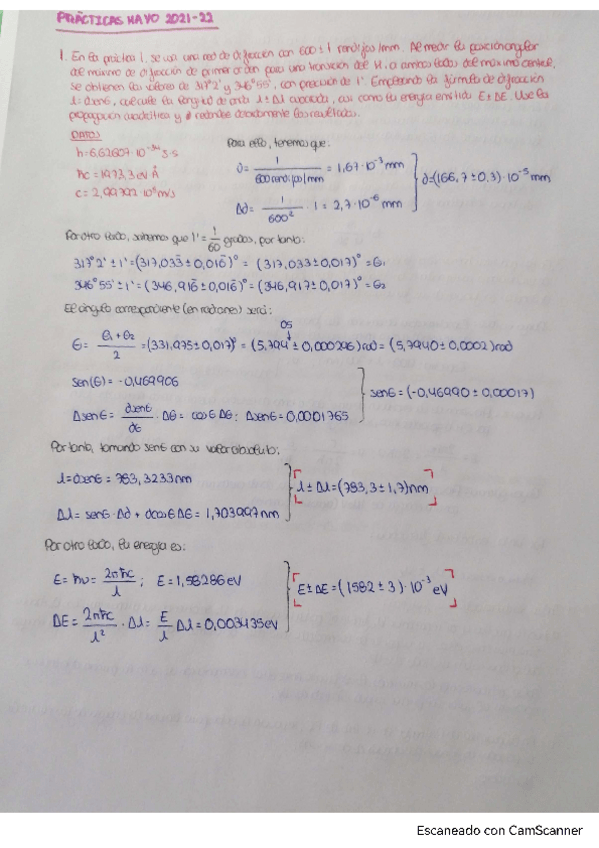 PRÁCTICAS MAYO 2021-22
1. En la práctica 1, se usa una red de difracción con 600±1 rendijas/mm. Al medir la posición angular
del máximo de difracción de primer orden para una transición del H, a ambos lados del máximo central,
se obtienen los valores de 317°2' y 346°55', con precisión de 1'. Empleando la fórmula de difracción
λ=dsenθ, calcule la longitud de onda λ±Δλ asociada, así como la energía emitida E±ΔE. Use la
propagación cuadrática y redondee adecuadamente los resultados.
DATOS
h=6,62607·10⁻³⁴ J·s
ħc=1973,3 eV Å
c=2,99792·10⁸ m/s
Para ello, tenemos que:
d = 1 / 600 rendijas/mm = 1,67·10⁻³ mm
Δd = 1 / 600² · 1 = 2,7·10⁻⁶ mm
d=(166,7±0,3)·10⁻⁵ mm
Por otro lado, sabemos que 1' = 1/60 grados, por tanto:
317°2' ± 1' = (317,03̄3 ± 0,016̄)° = (317,033±0,017)° = θ₁
346°55' ± 1' = (346,916̄ ± 0,016̄)° = (346,917±0,017)° = θ₂
El ángulo correspondiente (en radianes) será:
θ = θ₁ + θ₂ / 2 = (331,975±0,017)° = (5,794 05 ± 0,000296) rad = (5,7940±0,0002) rad
sen(θ) = -0,469906
Δsenθ = dsenθ / dθ · Δθ = cosθ Δθ; Δsenθ = 0,0001765
senθ = (-0,46990 ± 0,00017)
Por tanto, tomando senθ con su valor absoluto:
λ=dsenθ = 783,3233 nm
Δλ = senθ·Δd + dcosθ Δθ = 1,703997 nm
λ±Δλ = (783,3±1,7) nm
Por otro lado, la energía es:
E = hν = 2πħc / λ ; E = 1,58286 eV
ΔE = 2πħc / λ² · Δλ = E / λ Δλ = 0,003435 eV
E±ΔE = (1582 ± 3)·10⁻³ eV
Escaneado con CamScanner